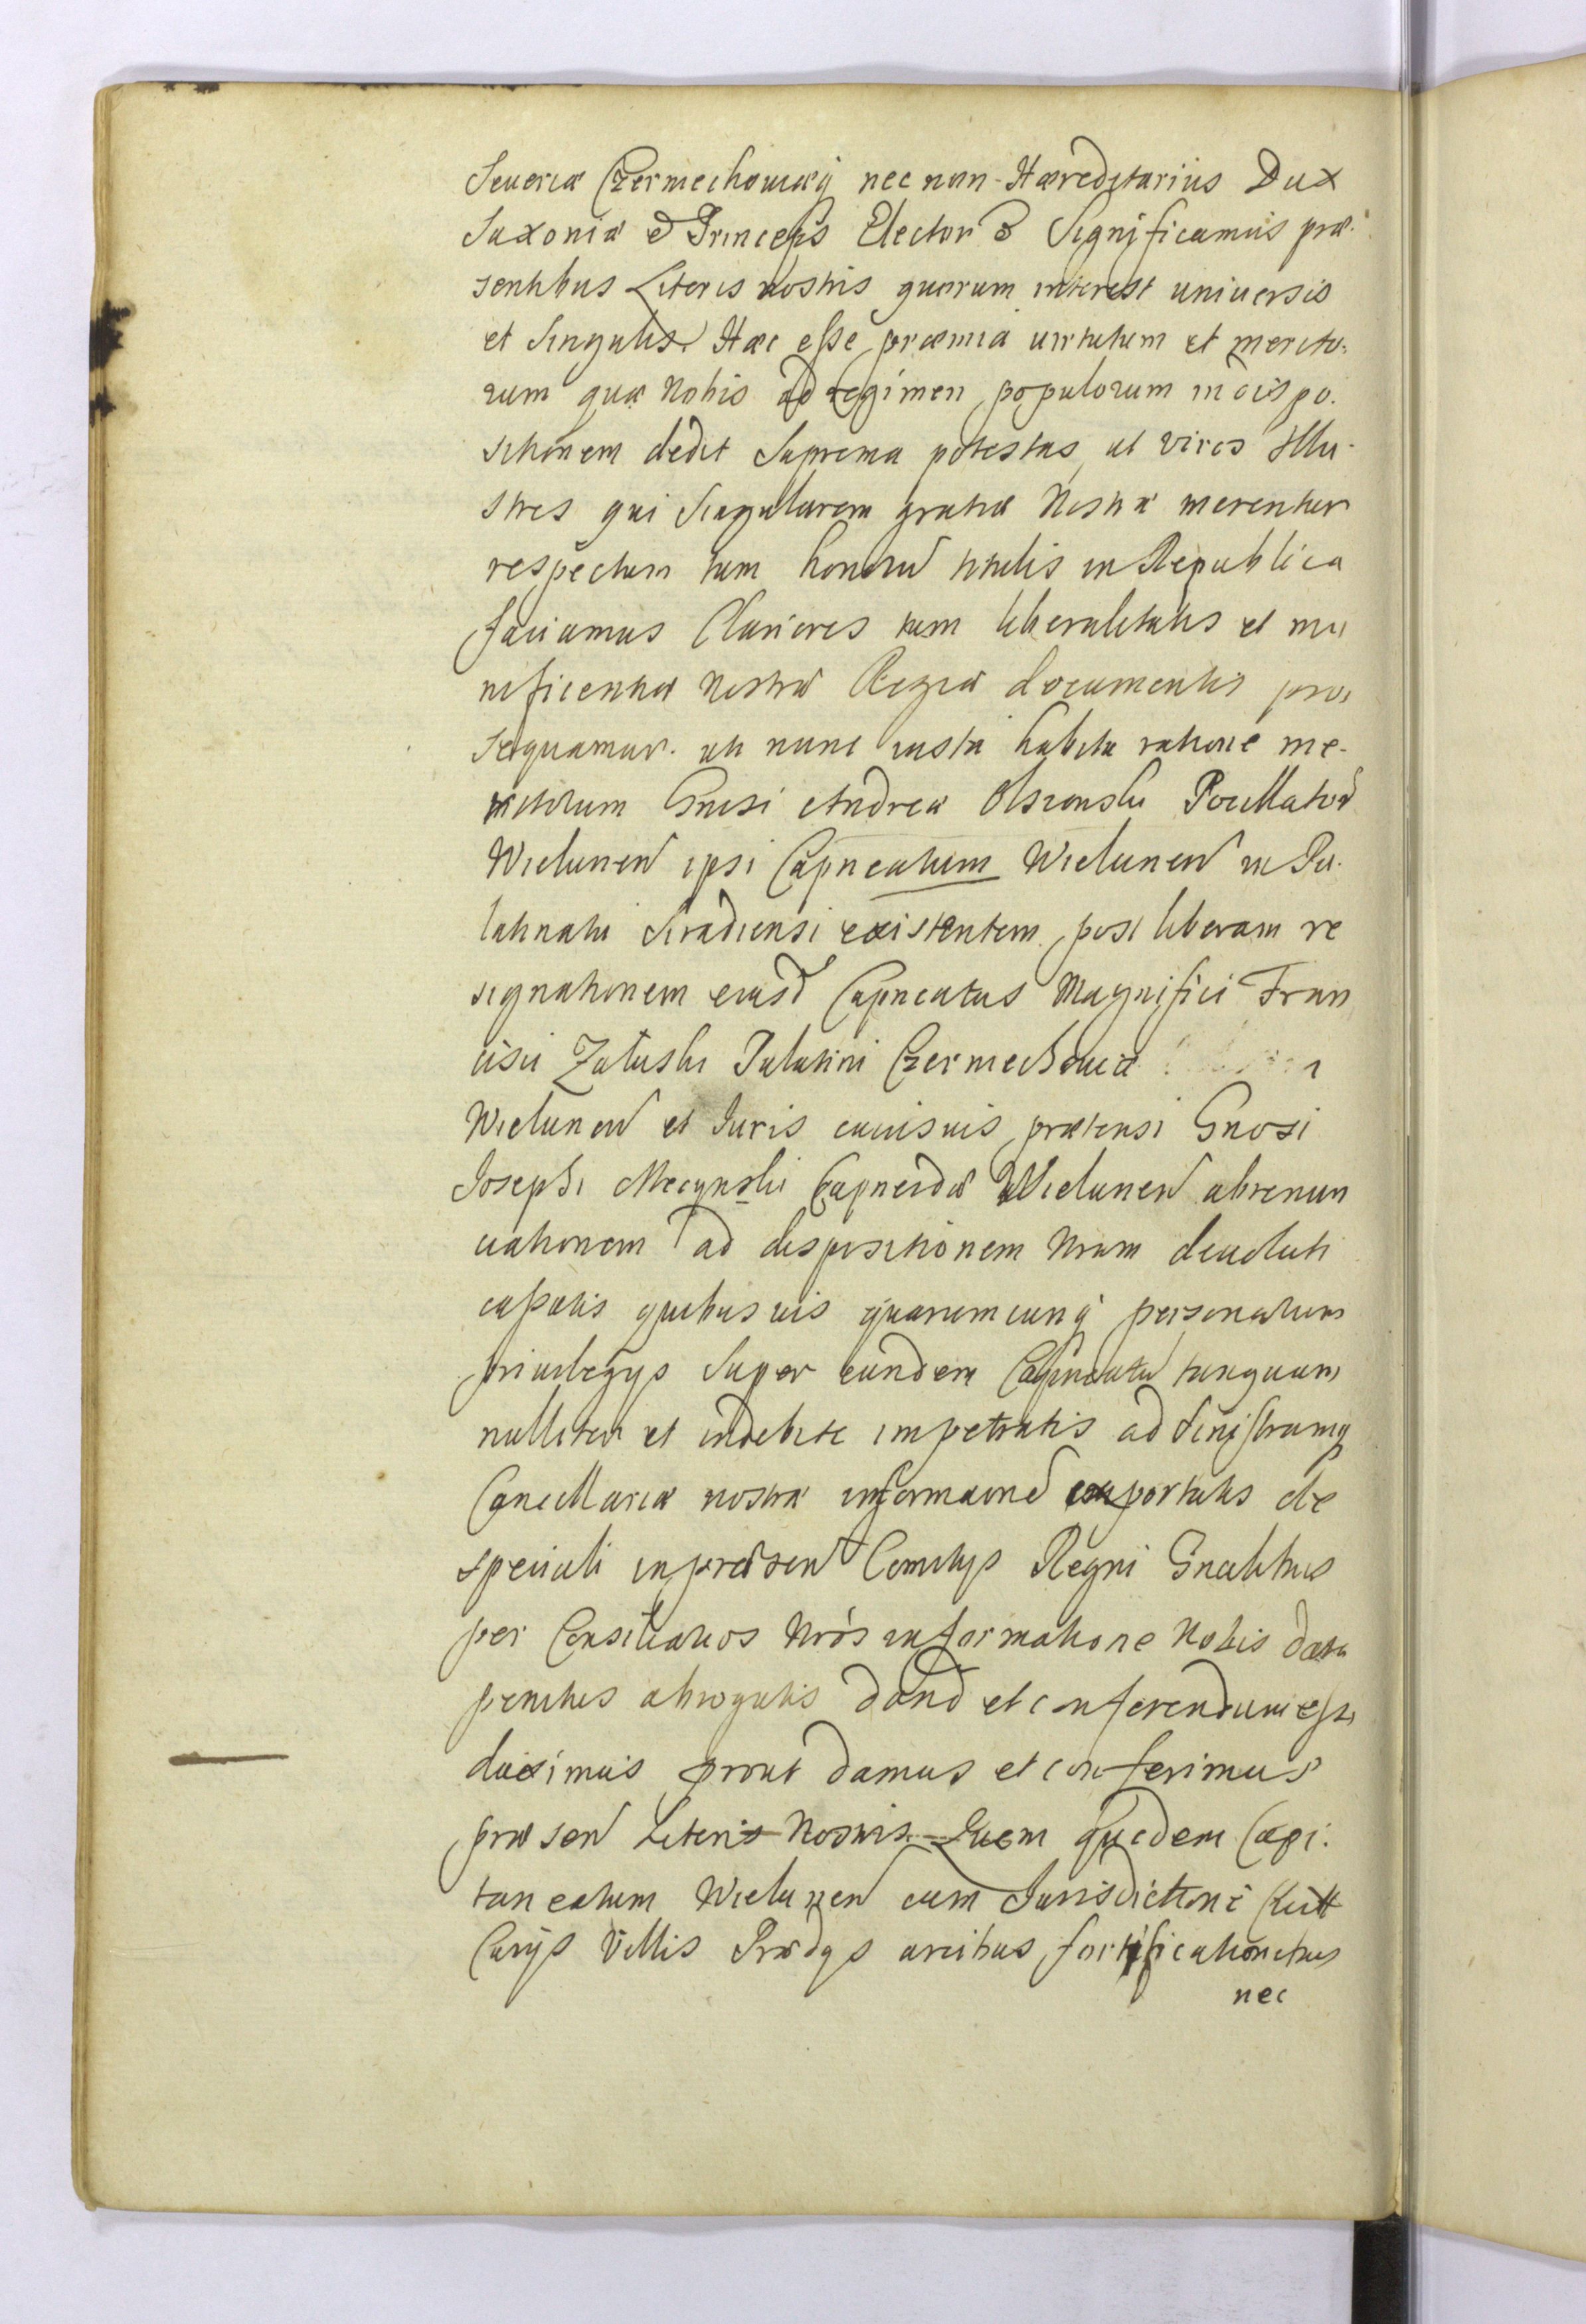 Seueriæ Czerniechowiæq́ nec non Hæreditarius Dux
Saxoniæ & Princeps Elector & Significamus præ-
sentibus Literis nostris quorum interest uniuersis
et Singulis. Hæc esse præmia uirtutum et merito-
rum quæ Nobis ad regimen populorum in dispo-
sitionem dedit Suprema potestas, ut viros Illu-
stres qui Singularem gratiæ Nostræ merentur
respectum tum honorũ titulis in Republica
faciamus Clariores tum liberalitatis et mu
nificentiæ Nostræ Regiæ documentis pro,
sequamur. uti nunc iusta habita ratione me-
ritorum Gnesi Andreæ Olszonski Pocillator̃
Wielunen̄ ipsi Capneatum Wielunen̄ in Pa-
latinatu Siradiensi existentem, post liberam re
signationem eiusd̄ Capneatus Magnifici Fran
cisci Załuski Palatini Czerniechouiæ
Wielunen̄ et Iuris cuiusuis prætensi Gnosi
Josephi Mecynski Capneidæ Wielunen̄ abrenun
ciationem ad dispositionem Nram deuoluti
cassatis quibusuis quarumcunq́ personarum
priuilegys super eundem Capneatũ tanquam
nulliter et indebite impetratis ad sinistramq
Cancellariæ nostræ informaoné exportatis de
speciali in præsen̄ Comitys Regni Gnalibus
per Consiliarios Nrós informatione Nobis data
penitus abrogatis dand̄ et conferendum esse
duximus prout damus et conferimus
præsen̄ Literis Nostris. Quem quidem Capi-
taneatum Wielunen̄ cum Jurisdictione
Villis Prædys arcibus fortificationibus
nec